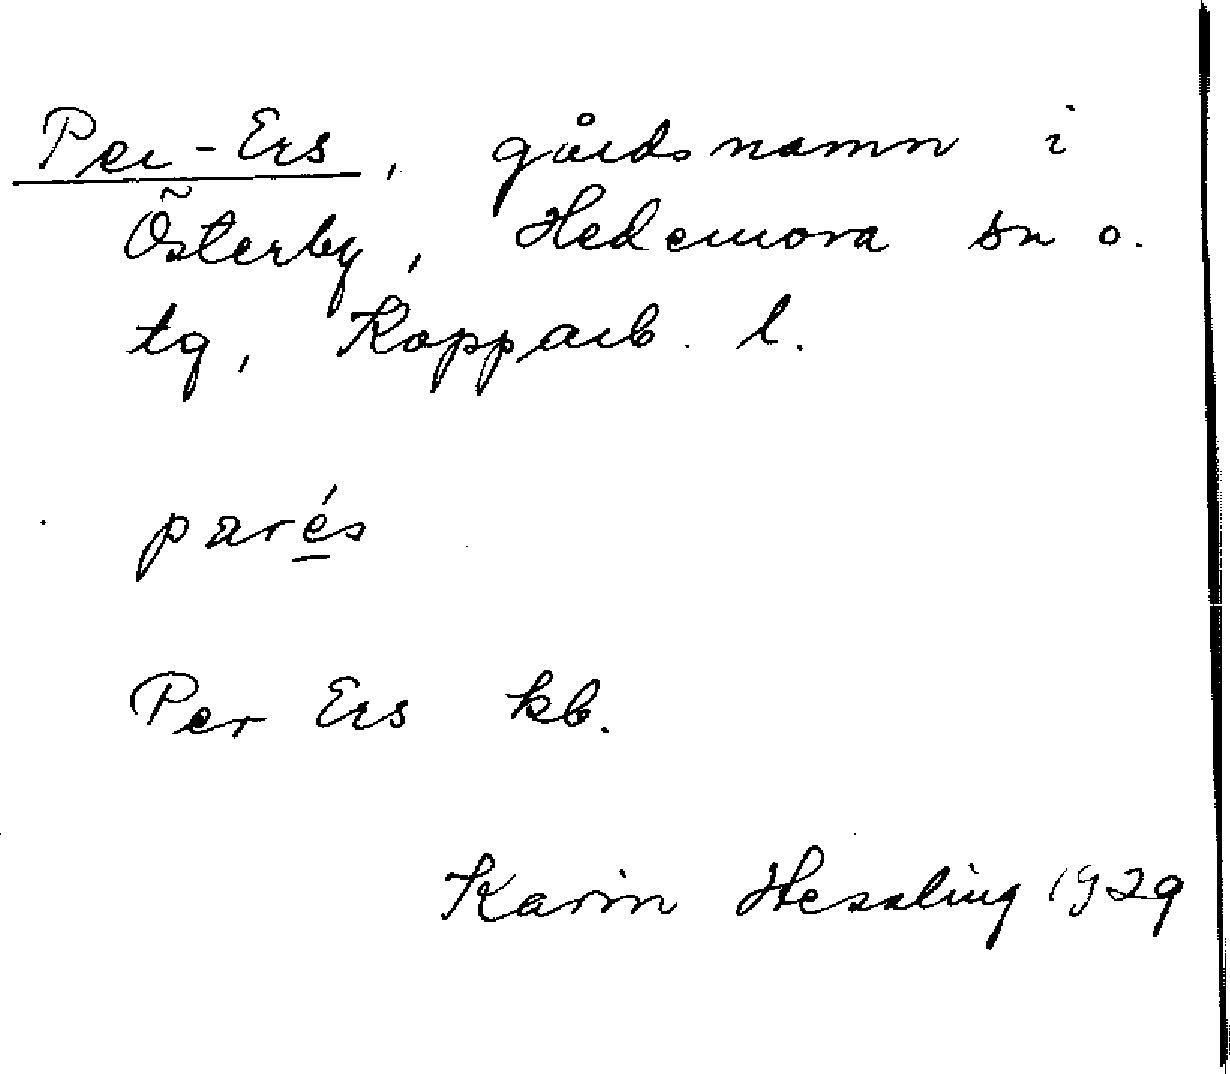 Per-Ers, gårdsnamn i
Österby, Hedemora sn o.
tg, Kopparb. l.
parés
Per Ers kb.
Karin Hessling 1929